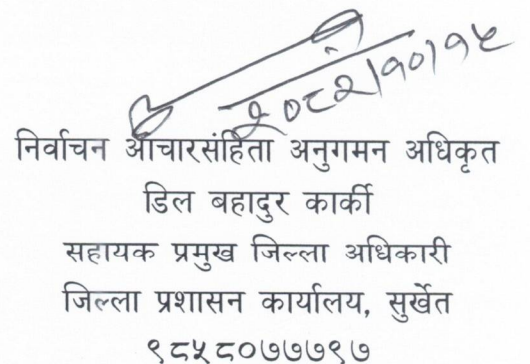 २०८२।१०।१५
निर्वाचन आचारसंहिता अनुगमन अधिकृत
डिल बहादुर कार्की
सहायक प्रमुख जिल्ला अधिकारी
जिल्ला प्रशासन कार्यालय, सुर्खेत
९८५८०७७७९७